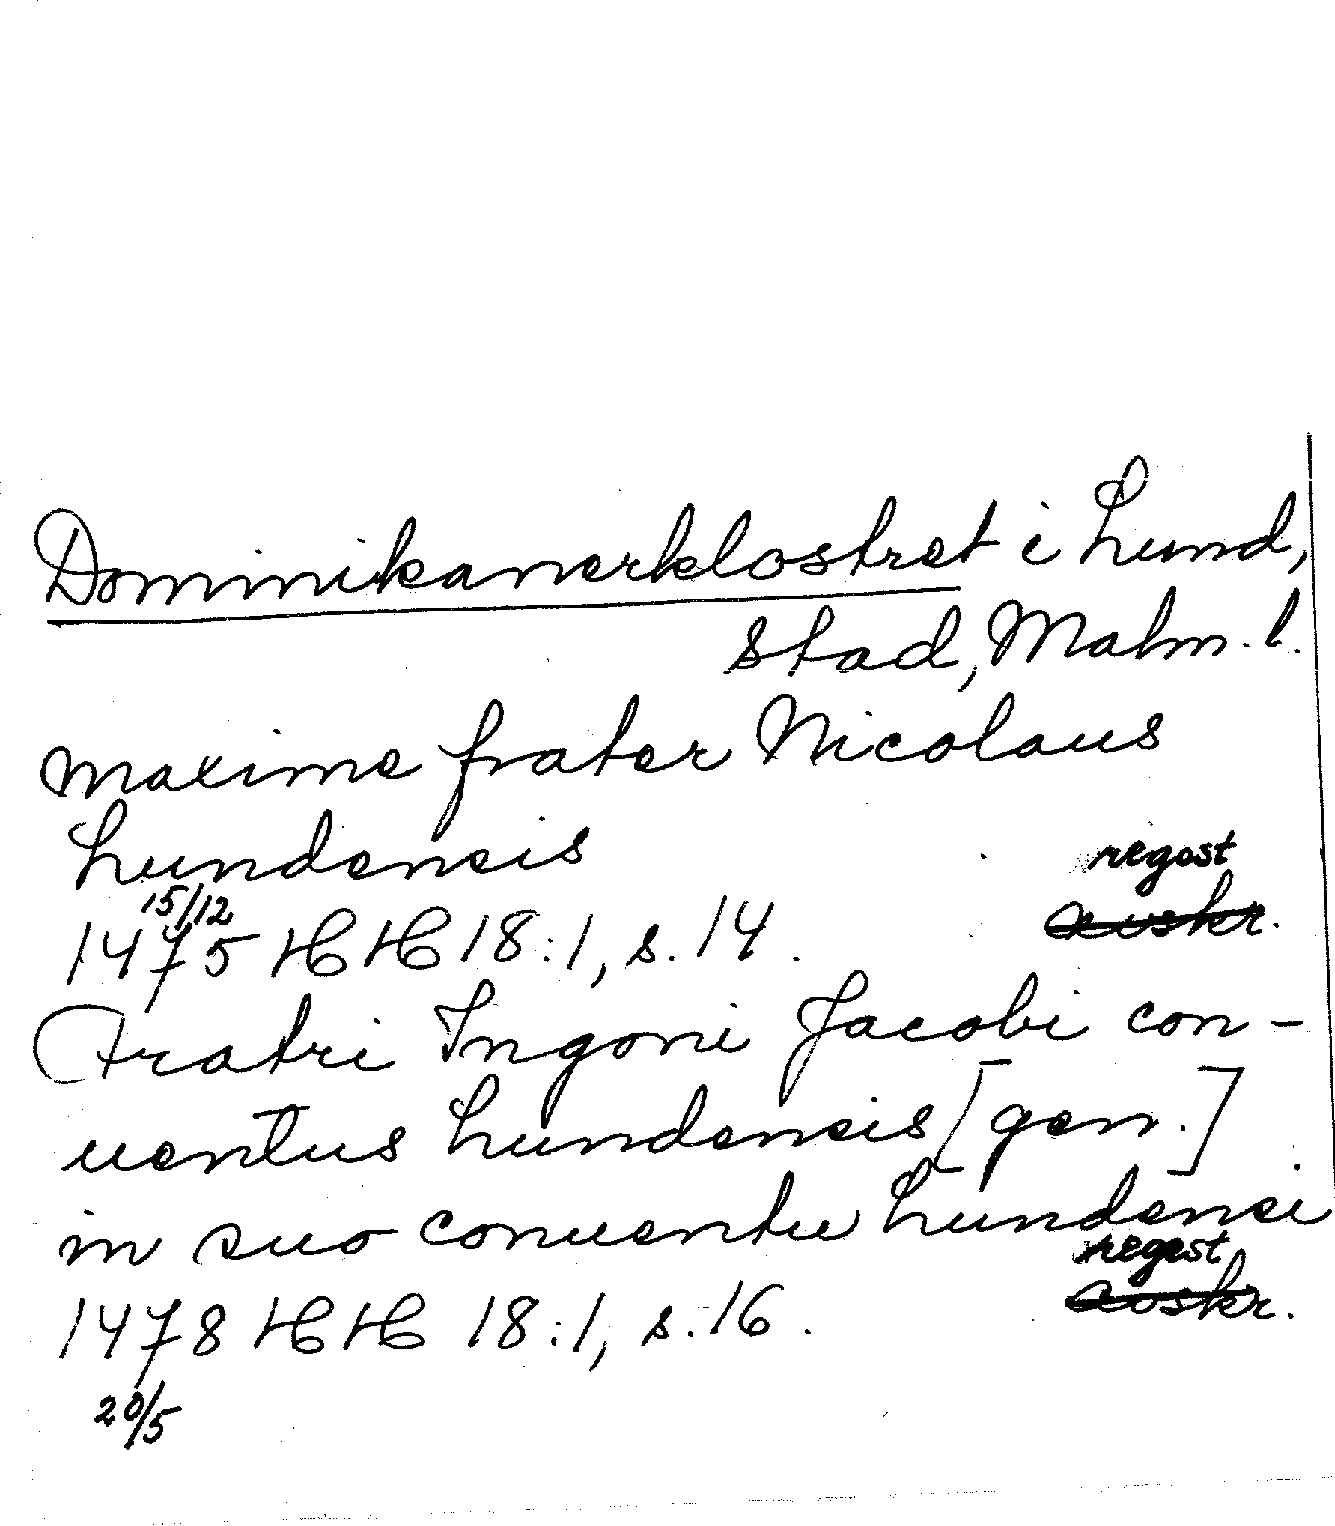 Dominikanerklostret i Lund,
stad, Malm. l.
maxime frater Nicolaus
Lundensis
regest
15/12
1475 HH 18:1, s. 14. avskr.
Fratri Ingoni Jacobi con-
uentus Lundensis [gen.]
in suo conuentu Lundensi
regest
1478 HH 18:1, s. 16. avskr.
20/5